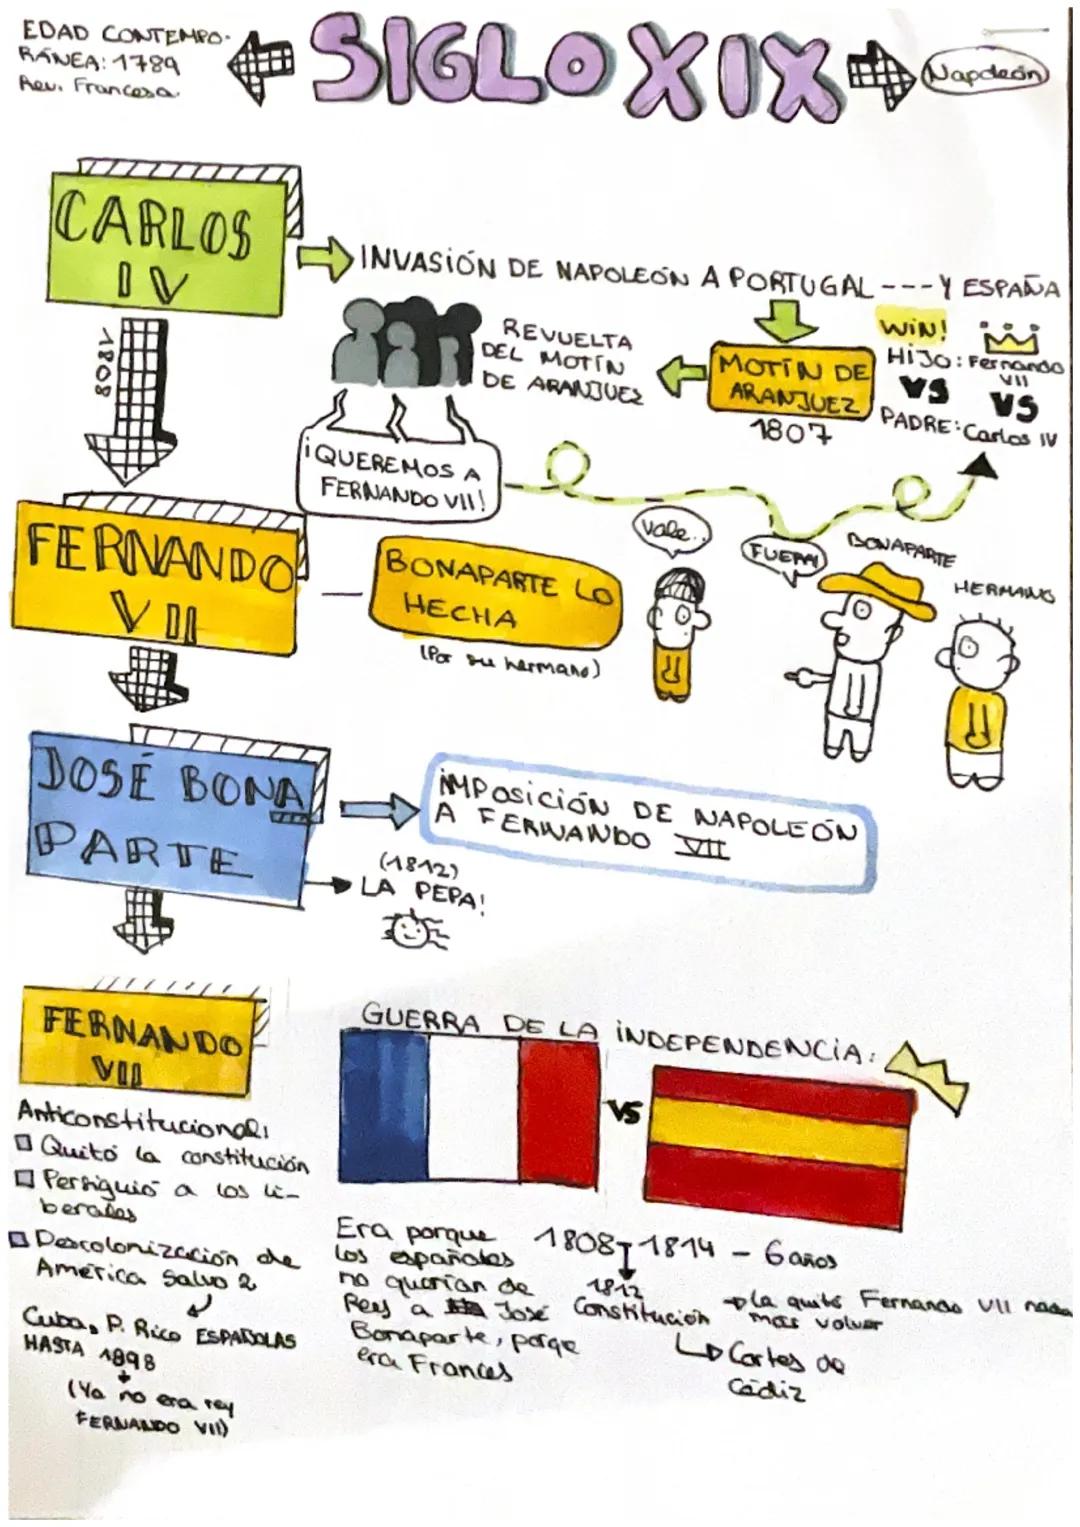 EDAD CONTEMPO-
RÁNEA: 1789
Rev. Francesa
SIGLO XIX
Napoleón
CARLOS
IV
INVASIÓN DE NAPOLEÓN A PORTUGAL --- Y ESPAÑA
1808
REVUELTA
DEL MOTÍN
DE ARANJUEZ
MOTÍN DE
ARANJUEZ
1807
WIN!
HIJO: Fernando
VII
VS VS
PADRE: Carlos IV
¡QUEREMOS A
FERNANDO VII!
FERNANDO
VII
BONAPARTE LO
HECHA
(Por su hermano)
Vale..
FUERA!
BONAPARTE
HERMANO
JOSÉ BONA
PARTE
IMPOSICIÓN DE NAPOLEÓN
A FERNANDO VII
(1812)
LA PEPA!
FERNANDO
VII
Anticonstitucional:
Quitó la constitución
Persiguió a los li-
berales
Descolonización de
América salvo 2
Cuba, P. Rico ESPAÑOLAS
HASTA 1898
(Ya no era rey
FERNANDO VII)
GUERRA DE LA INDEPENDENCIA:
VS
Era porque
los españoles
no querían de
Rey a José
Bonaparte, porqe
era Frances
1808-1814 - 6 años
1812
Constitución
La quitó Fernando VII nada
más volver
Cortes de
Cádiz